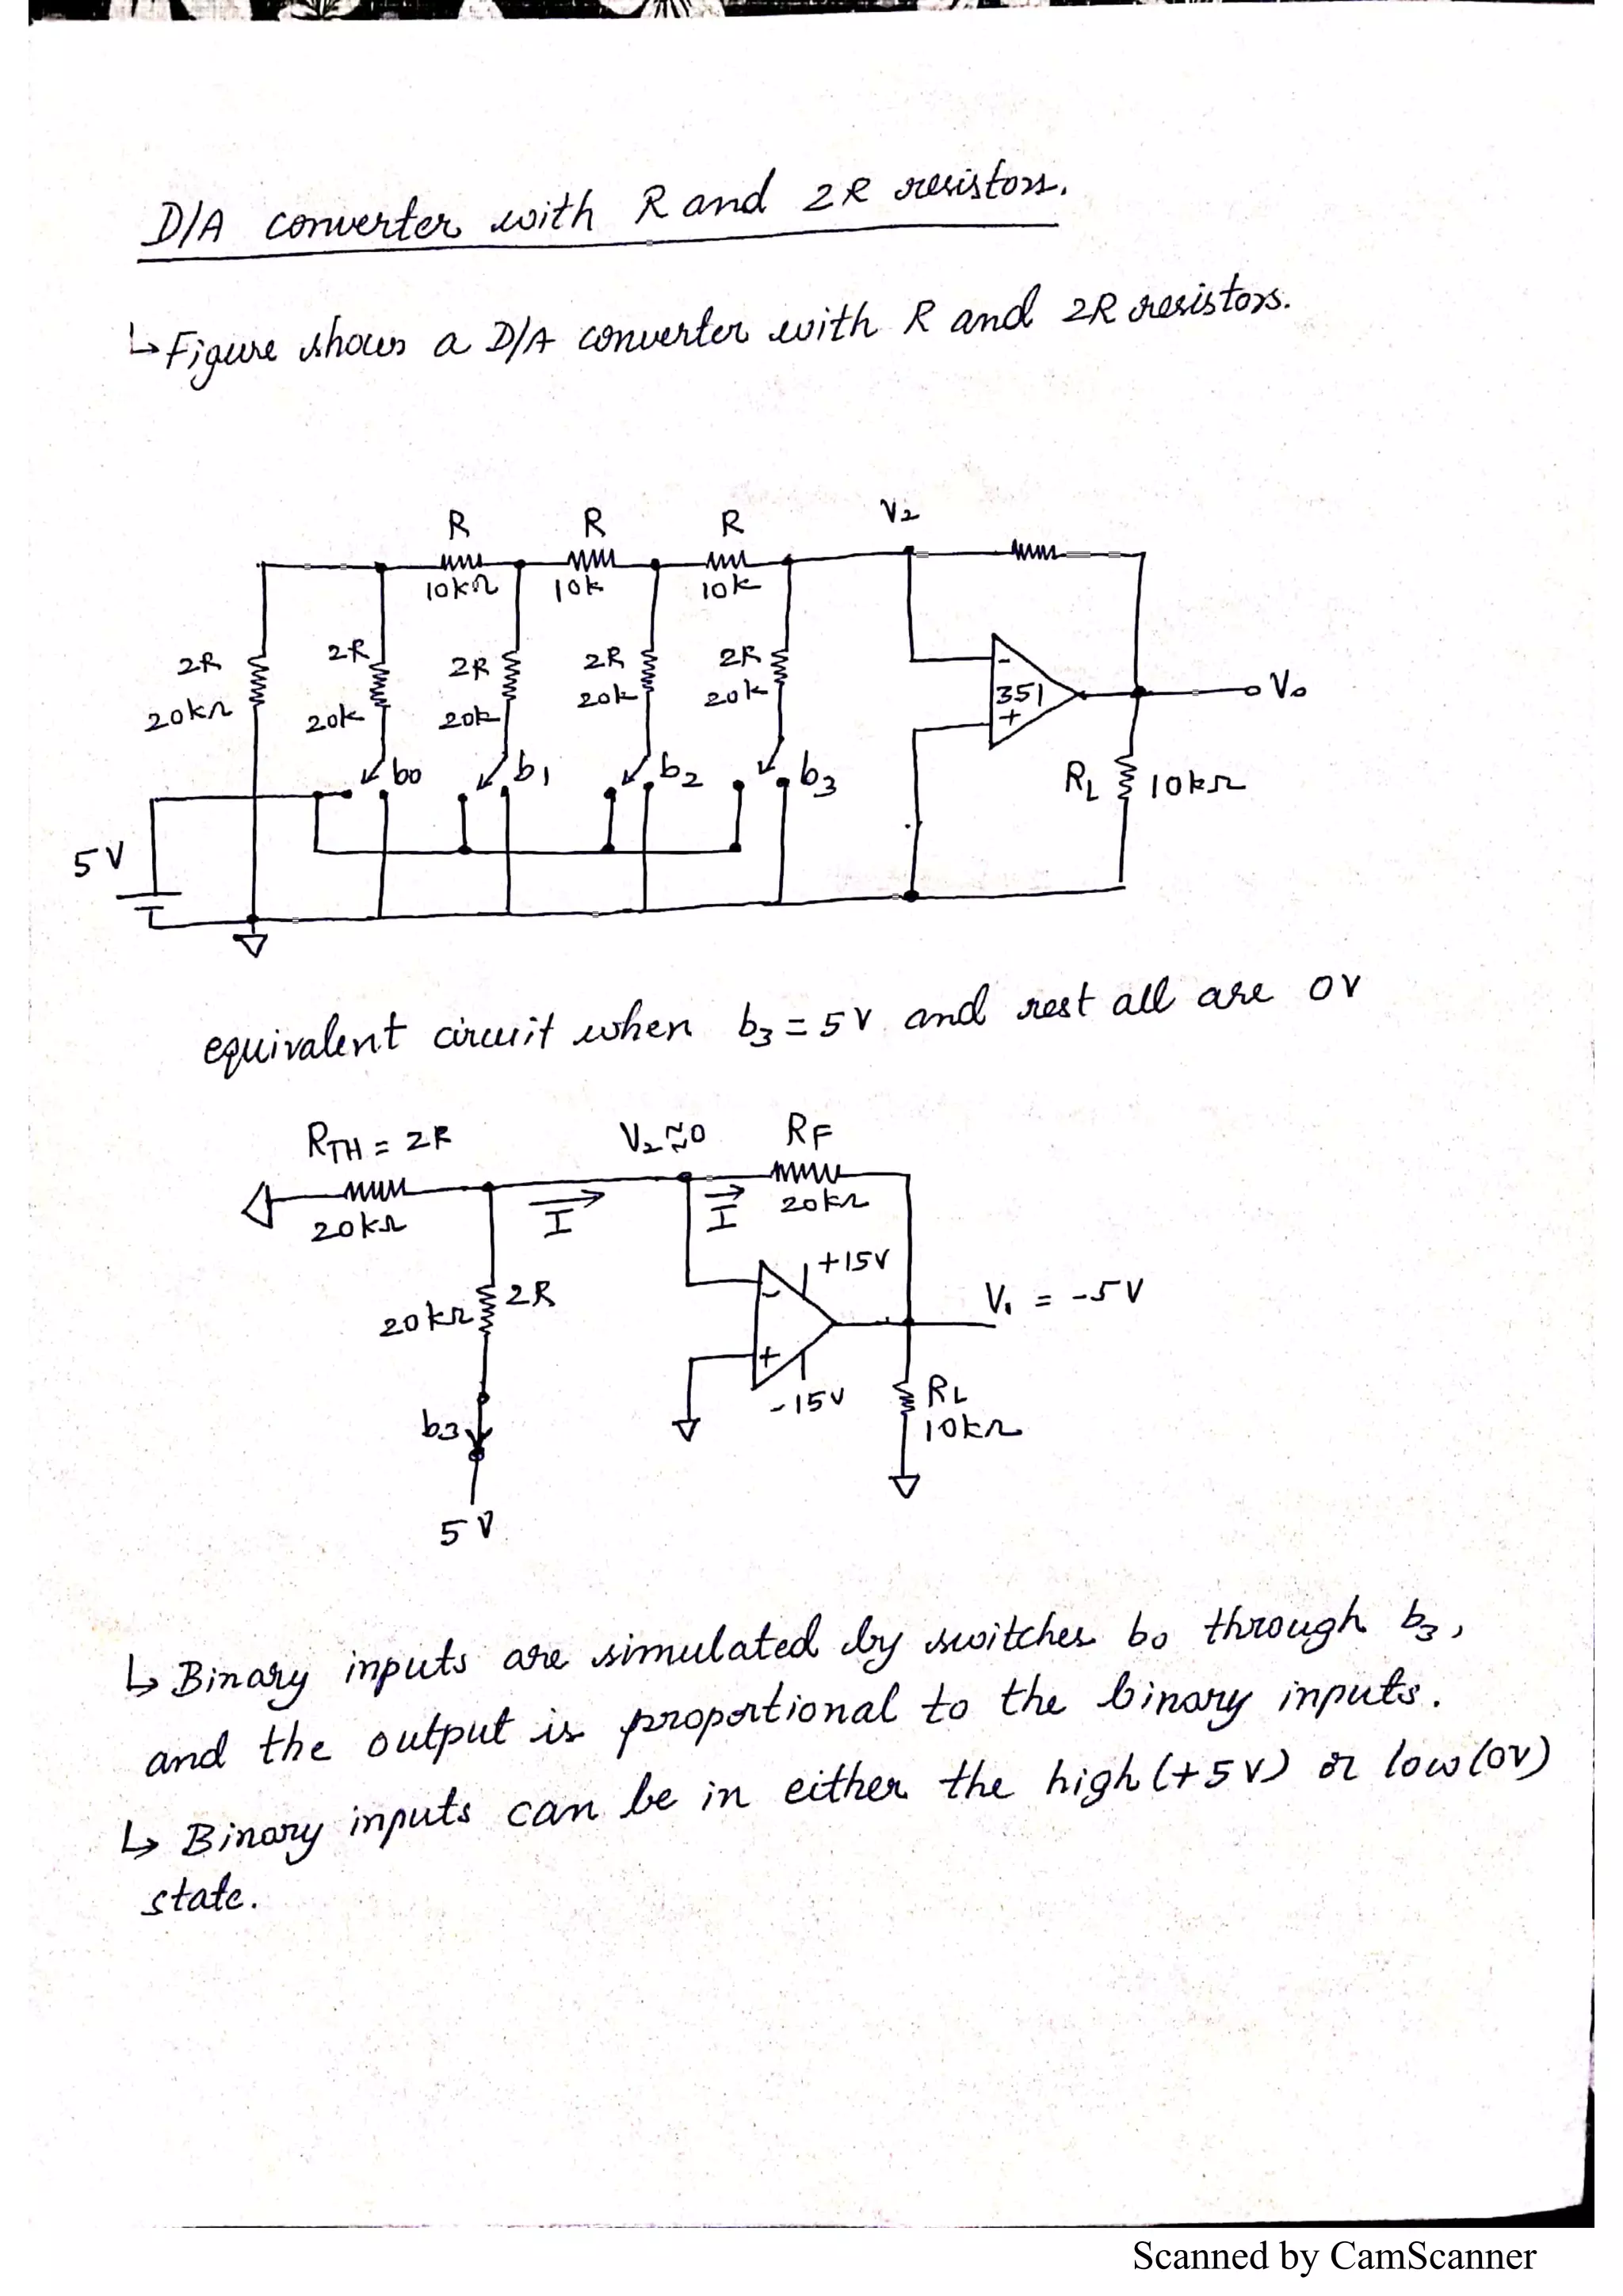 D/A converter with R and 2R resistors.
↳ Figure shows a D/A converter with R and 2R resistors.
R R R V2
10kΩ 10k 10k
2R 2R 2R 2R 2R
20kΩ 20k 20k 20k 20k
- 351 + Vo
b0 b1 b2 b3
RL 10kΩ
5V
equivalent circuit when b3 = 5V and rest all are 0V
RTH = 2R V2 ≈ 0 RF
20kΩ I I 20kΩ
+15V
20kΩ 2R - V1 = -5V
+ -15V RL
b3 10kΩ
5V
↳ Binary inputs are simulated by switches b0 through b3,
and the output is proportional to the binary inputs.
↳ Binary inputs can be in either the high (+5V) or low (0V)
state.
Scanned by CamScanner